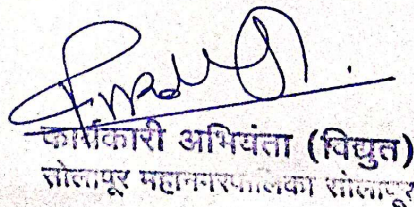 कार्यकारी अभियंता (विद्युत)
सोलापूर महानगरपालिका सोलापूर